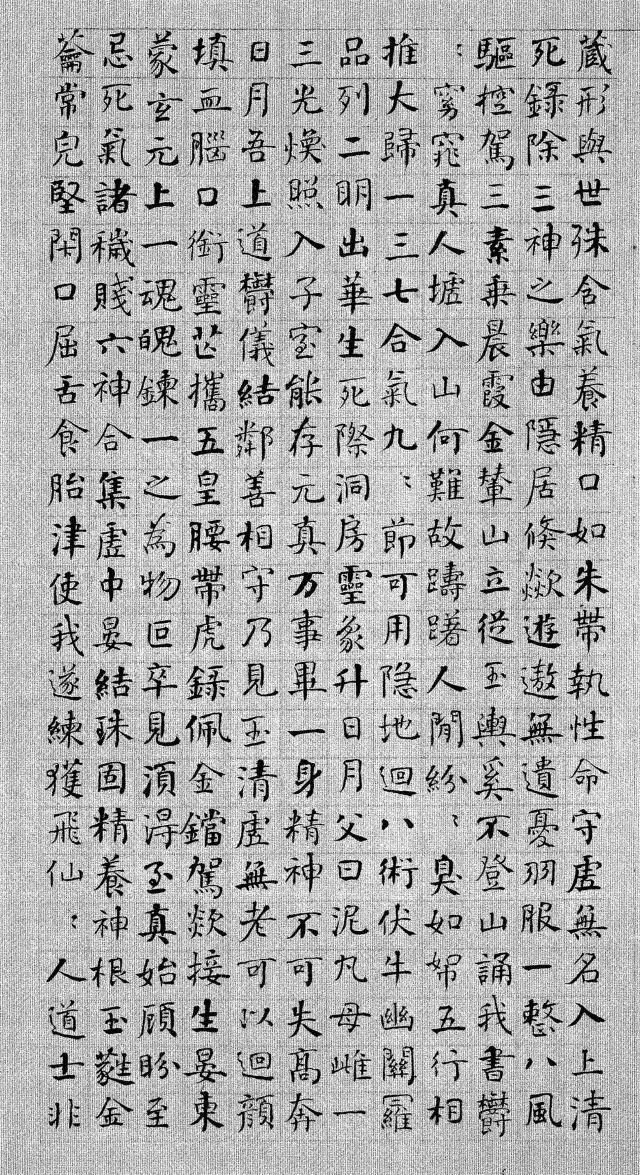 藏形與世殊含氣養精口如朱帶執性命守虛無名入上清
死錄除三神之樂由隱居倏欻遊遨無遺憂羽服一整八風
驅控駕三素乘晨霞金輦山立從玉輿奚不登山誦我書欝
〻窈窕真人墟入山何難故躊躇人間紛〻臭如帤五行相
推大歸一三七合氣九〻節可用隐地迴八術伏牛幽闕羅
品列二明出華生死際洞房靈象升日月父曰泥丸母雌一
三光煥照入子室能存元真万事畢一身精神不可失高奔
日月吾上道欝儀結鄰善相守乃見玉清虛無老可以迴顏
填血腦口銜靈芒攜五皇腰帶虎錄佩金鐺駕欻接生晏東
蒙玄元上一魂魄鍊一之為物叵卒見湏得至真始顧眄至
忌死氣諸穢賤六神合集虛中晏結珠固精養神根玉金
蘥常完堅閇口屈舌食胎津使我遂練獲飛仙〻人道士非